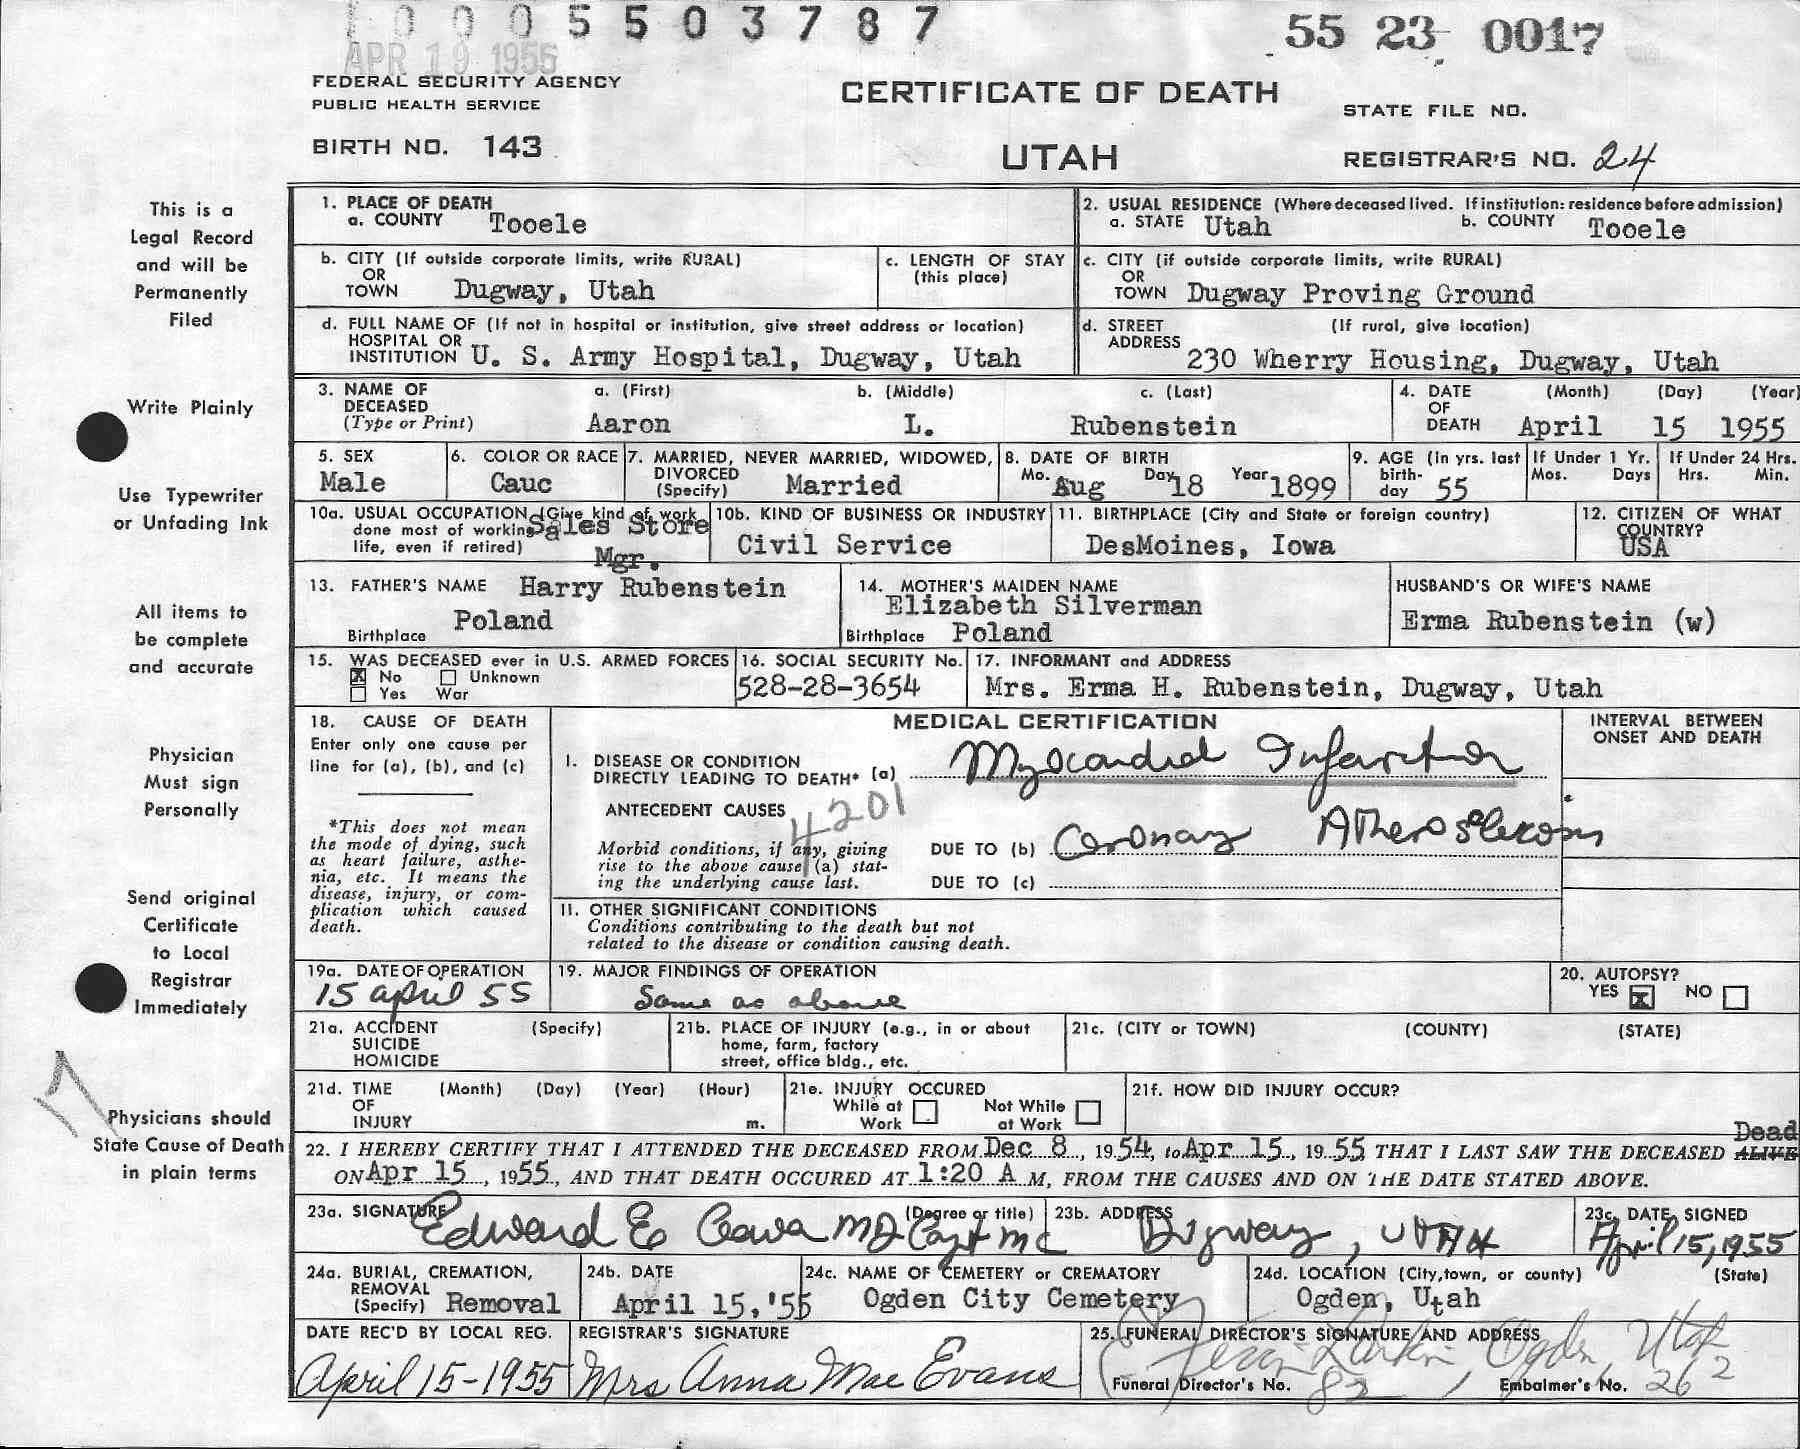 10005503787
55 23 0017
APR 19 1955
FEDERAL SECURITY AGENCY
PUBLIC HEALTH SERVICE
CERTIFICATE OF DEATH
STATE FILE NO.
BIRTH NO. 143
UTAH
REGISTRAR'S NO. 24
This is a
Legal Record
and will be
Permanently
Filed
Write Plainly
Use Typewriter
or Unfading Ink
All items to
be complete
and accurate
Physician
Must sign
Personally
Send original
Certificate
to Local
Registrar
Immediately
17
Physicians should
State Cause of Death
in plain terms
1. PLACE OF DEATH
a. COUNTY Tooele
2. USUAL RESIDENCE (Where deceased lived. If institution: residence before admission)
a. STATE Utah b. COUNTY Tooele
b. CITY (If outside corporate limits, write RURAL)
OR
TOWN Dugway, Utah
c. LENGTH OF STAY
(this place)
c. CITY (if outside corporate limits, write RURAL)
OR
TOWN Dugway Proving Ground
d. FULL NAME OF (If not in hospital or institution, give street address or location)
HOSPITAL OR
INSTITUTION U. S. Army Hospital, Dugway, Utah
d. STREET (If rural, give location)
ADDRESS
230 Wherry Housing, Dugway, Utah
3. NAME OF a. (First) b. (Middle) c. (Last)
DECEASED
(Type or Print) Aaron L. Rubenstein
4. DATE (Month) (Day) (Year)
OF
DEATH April 15 1955
5. SEX
Male
6. COLOR OR RACE
Cauc
7. MARRIED, NEVER MARRIED, WIDOWED,
DIVORCED
(Specify) Married
8. DATE OF BIRTH
Mo. Aug Day 18 Year 1899
9. AGE (In yrs. last
birth-
day 55
If Under 1 Yr.
Mos. Days
If Under 24 Hrs.
Hrs. Min.
10a. USUAL OCCUPATION (Give kind of work
done most of working
life, even if retired)
Sales Store
Mgr.
10b. KIND OF BUSINESS OR INDUSTRY
Civil Service
11. BIRTHPLACE (City and State or foreign country)
DesMoines, Iowa
12. CITIZEN OF WHAT
COUNTRY?
USA
13. FATHER'S NAME Harry Rubenstein
Birthplace Poland
14. MOTHER'S MAIDEN NAME
Elizabeth Silverman
Birthplace Poland
HUSBAND'S OR WIFE'S NAME
Erma Rubenstein (w)
15. WAS DECEASED ever in U.S. ARMED FORCES
X No Unknown
Yes War
16. SOCIAL SECURITY No.
528-28-3654
17. INFORMANT and ADDRESS
Mrs. Erma H. Rubenstein, Dugway, Utah
18. CAUSE OF DEATH
Enter only one cause per
line for (a), (b), and (c)
*This does not mean
the mode of dying, such
as heart failure, asthe-
nia, etc. It means the
disease, injury, or com-
plication which caused
death.
MEDICAL CERTIFICATION
INTERVAL BETWEEN
ONSET AND DEATH
I. DISEASE OR CONDITION
DIRECTLY LEADING TO DEATH* (a) Myocardial Infarction
ANTECEDENT CAUSES
4201
Morbid conditions, if any, giving
rise to the above cause (a) stat-
ing the underlying cause last.
DUE TO (b) Coronary Atherosclerosis
DUE TO (c)
11. OTHER SIGNIFICANT CONDITIONS
Conditions contributing to the death but not
related to the disease or condition causing death.
19a. DATE OF OPERATION
15 april 55
19. MAJOR FINDINGS OF OPERATION
Same as above
20. AUTOPSY?
YES X NO
21a. ACCIDENT (Specify)
SUICIDE
HOMICIDE
21b. PLACE OF INJURY (e.g., in or about
home, farm, factory
street, office bldg., etc.
21c. (CITY or TOWN) (COUNTY) (STATE)
21d. TIME (Month) (Day) (Year) (Hour)
OF
INJURY m.
21e. INJURY OCCURED
While at Not While
Work at Work
21f. HOW DID INJURY OCCUR?
Dead
22. I HEREBY CERTIFY THAT I ATTENDED THE DECEASED FROM Dec 8, 1954, to Apr 15, 1955 THAT I LAST SAW THE DECEASED ALIVE
ON Apr 15, 1955, AND THAT DEATH OCCURED AT 1:20 A M, FROM THE CAUSES AND ON THE DATE STATED ABOVE.
23a. SIGNATURE (Degree or title)
Edward E MD Capt MC
23b. ADDRESS
Dugway, UTAH
23c. DATE SIGNED
April 15, 1955
24a. BURIAL, CREMATION,
REMOVAL
(Specify) Removal
24b. DATE
April 15, '55
24c. NAME OF CEMETERY or CREMATORY
Ogden City Cemetery
24d. LOCATION (City, town, or county) (State)
Ogden, Utah
DATE REC'D BY LOCAL REG.
April 15-1955
REGISTRAR'S SIGNATURE
Mrs Anna Mae Evans
25. FUNERAL DIRECTOR'S SIGNATURE AND ADDRESS
Larkin, Ogden, Utah
Funeral Director's No. 82 Embalmer's No. 262